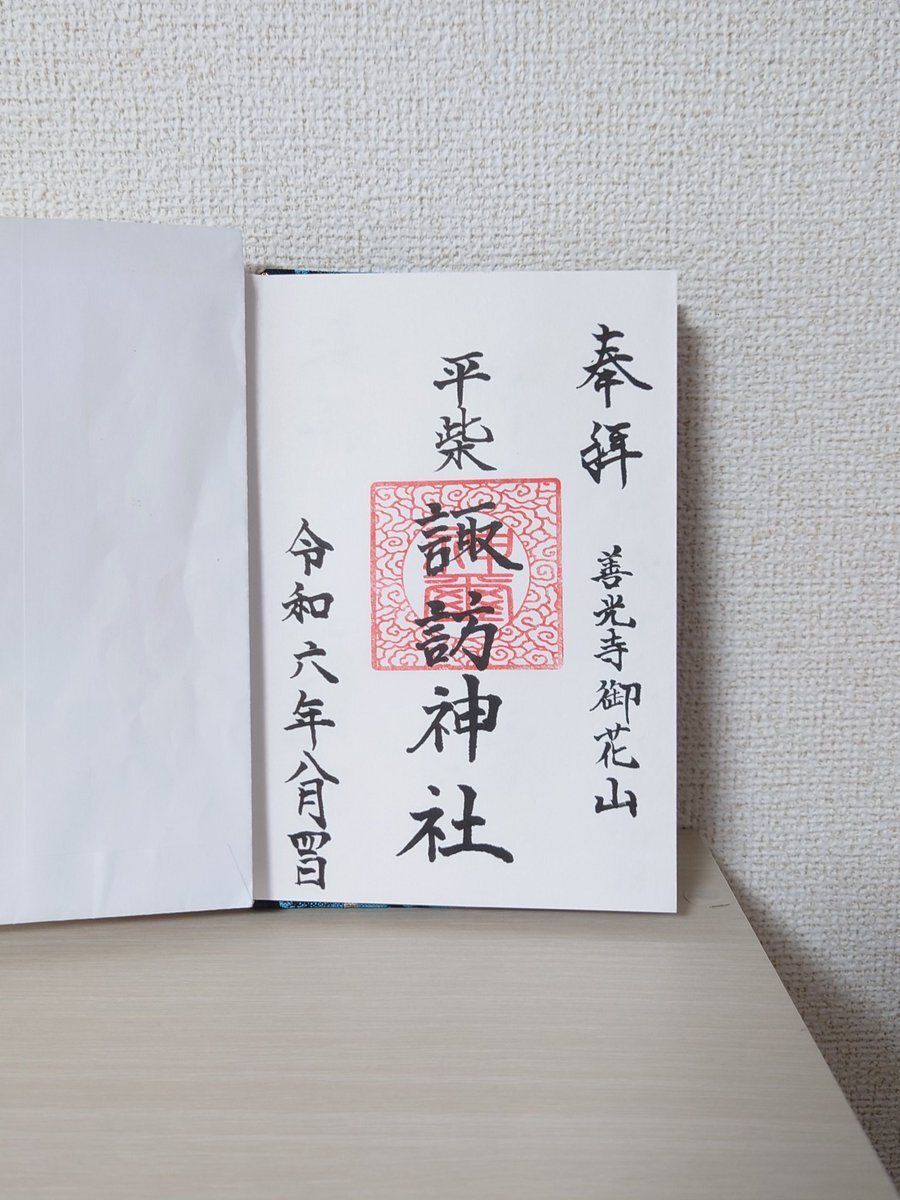 奉拝 善光寺御花山
平柴 諏訪神社
令和六年八月四日